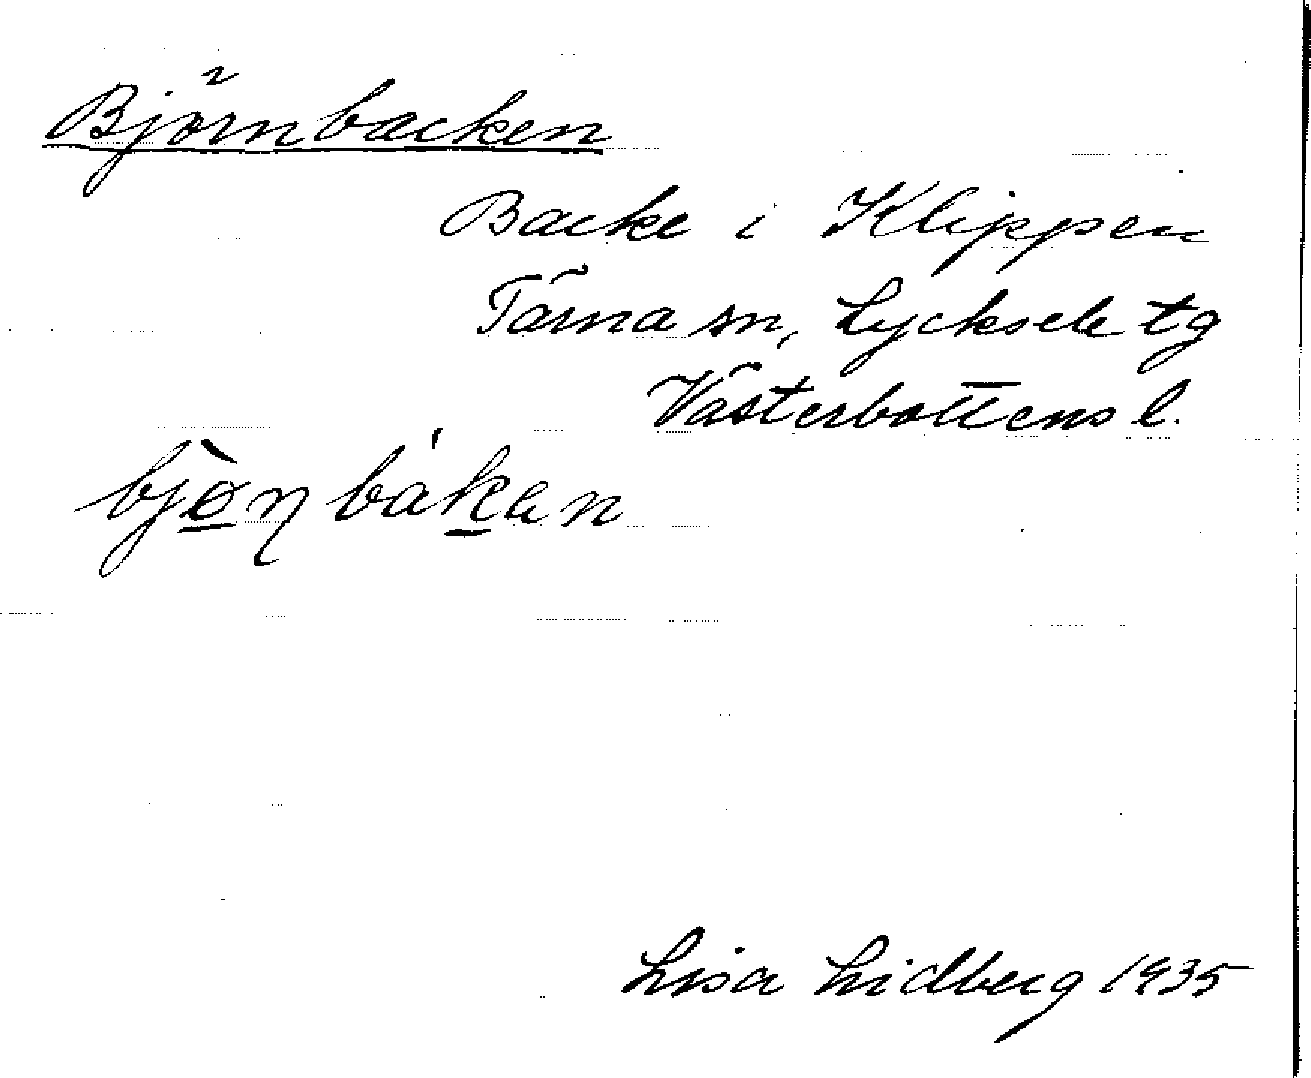 Björnbacken
Backe i Klippen
Tärna sn, Lycksele tg
Västerbottens l.
bjònbáken
Lisa Lidberg 1935